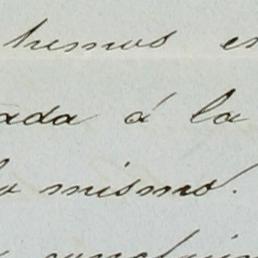 hemos en
ada á la
lo mismo.